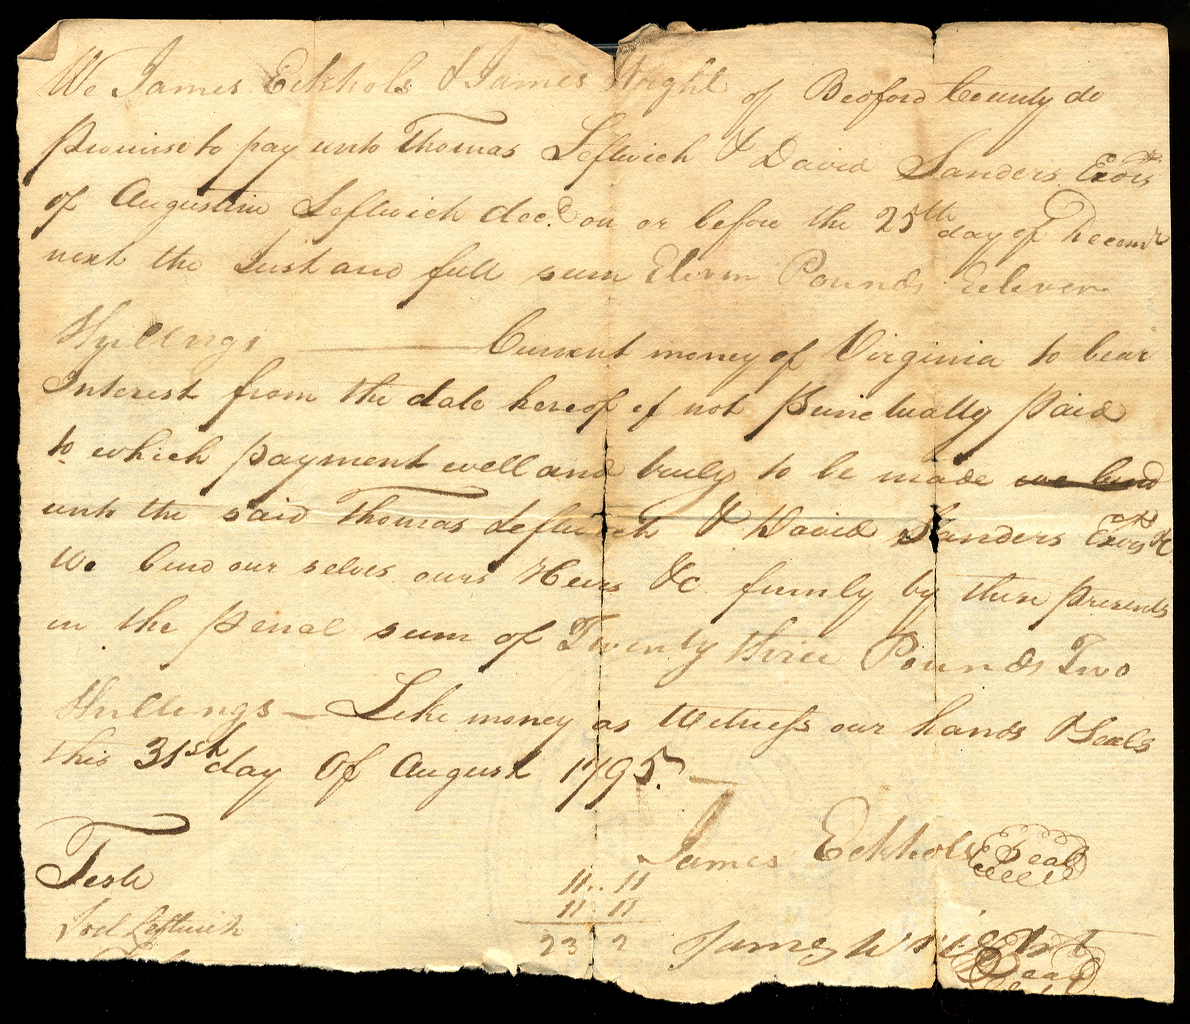 We James Eckhols & James Wright of Bedford County do
promise to pay unto Thomas Leftwich & David Sanders Exors
of Augustin Leftwich decd. on or before the 25th day of Decemr
next the Just and full sum Elevn Pounds Eeleven
Hyllings Current money of Virginia to bear
Interest from the date hereof if not Punctually Paid
to which payment well and truly to be made we bind
unto the said Thomas Leftwich & David Sanders Exors &c
We bind our selves ours Heirs &c firmly by these presents
in the penal sum of Twenty three Pounds Two
Hullings – Like money as Witness our hands & Seals
this 31st day Of August 1795.
James Eckhols Seal
Teste
11.. 11
11 11
Joel Leftwich
23 2
James Wright Seal